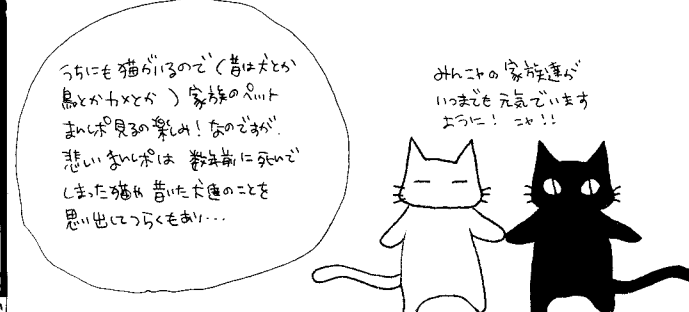 うちにも猫がいるので(昔は犬とか
鳥とかカメとか)家族のペット
まんレポ見るの楽しみ!なのですが、
悲しいまんレポは数年前に死んで
しまった猫や昔いた犬達のことを
思い出してつらくもあり…
みんニャの家族達が
いつまでも元気でいます
ように!ニャ!!